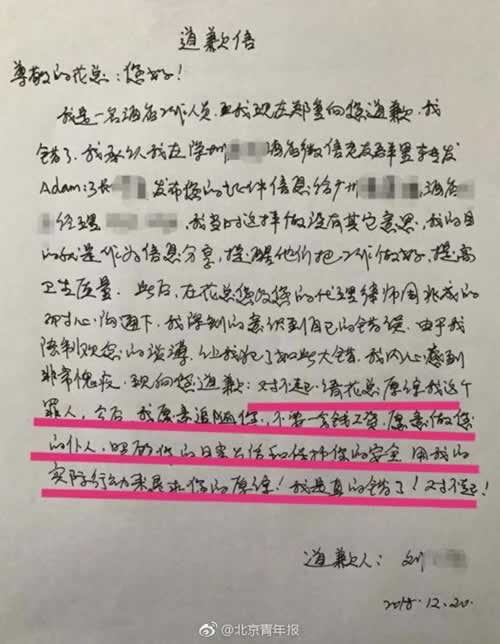 道歉信
尊敬的花总：您好！
我是一名酒店工作人员，我现在郑重向您道歉，我
错了，我承认我在广州酒店微信交友群里转发
Adam 发布您的证件信息给广州，酒店
经理，我当时这样做没有其它意思，我的目
的仅是作为信息分享，提醒他们把工作做好，提高
卫生质量．此后，在花总您及您的代理律师周兆成的
耐心沟通下，我深刻的意识到自己的错误，由于我
法制观念的淡薄，让我犯了如此大错，我内心感到
非常愧疚，现向您道歉：对不起，请花总原谅我这个
罪人，今后，我愿意追随您，不要一分钱工资，愿意做您
的仆人，照顾您的日常生活和保护您的安全，用我的
实际行动来恳求您的原谅！我是真的错了！对不起！
道歉人：刘
2018.12.20.
@北京青年报